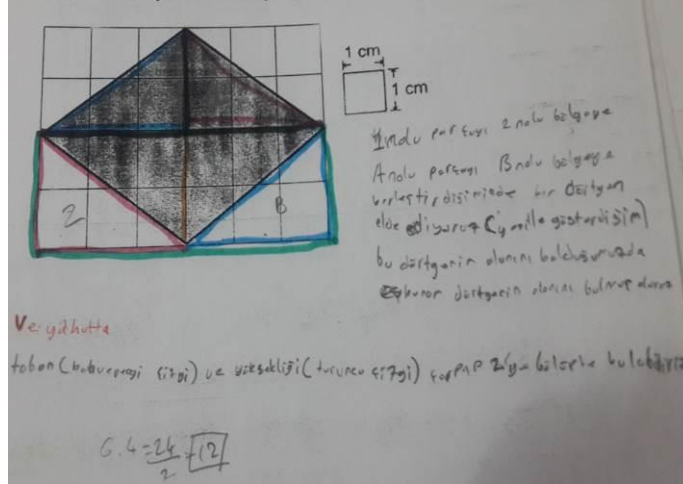 1 cm
1 cm
2
B
1 nolu parçayı 2 nolu bölgeye
A nolu parçayı B nolu bölgeye
birleştirdiğimizde bir dörtgen
elde ediyoruz (yeşille gösterdiğim)
bu dörtgenin alanını bulduğumuzda
dörtgenin alanını bulmuş oluruz
Ve yahutta
taban ( çizgi) ve yüksekliği (turuncu çizgi) çarpıp 2'ye bölerek bulabiliriz
6.4=24/2=12